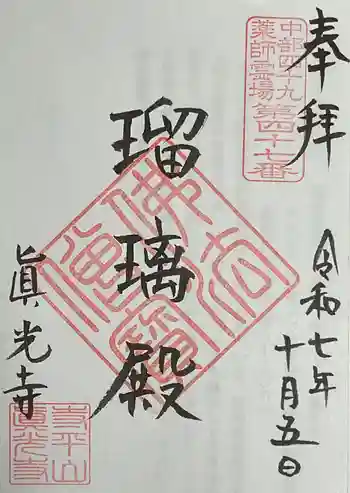 奉拝
中部四十九
薬師霊場第四十七番
令和七年
十月五日
瑠璃殿
佛法僧寳
眞光寺
寺平山
眞光寺